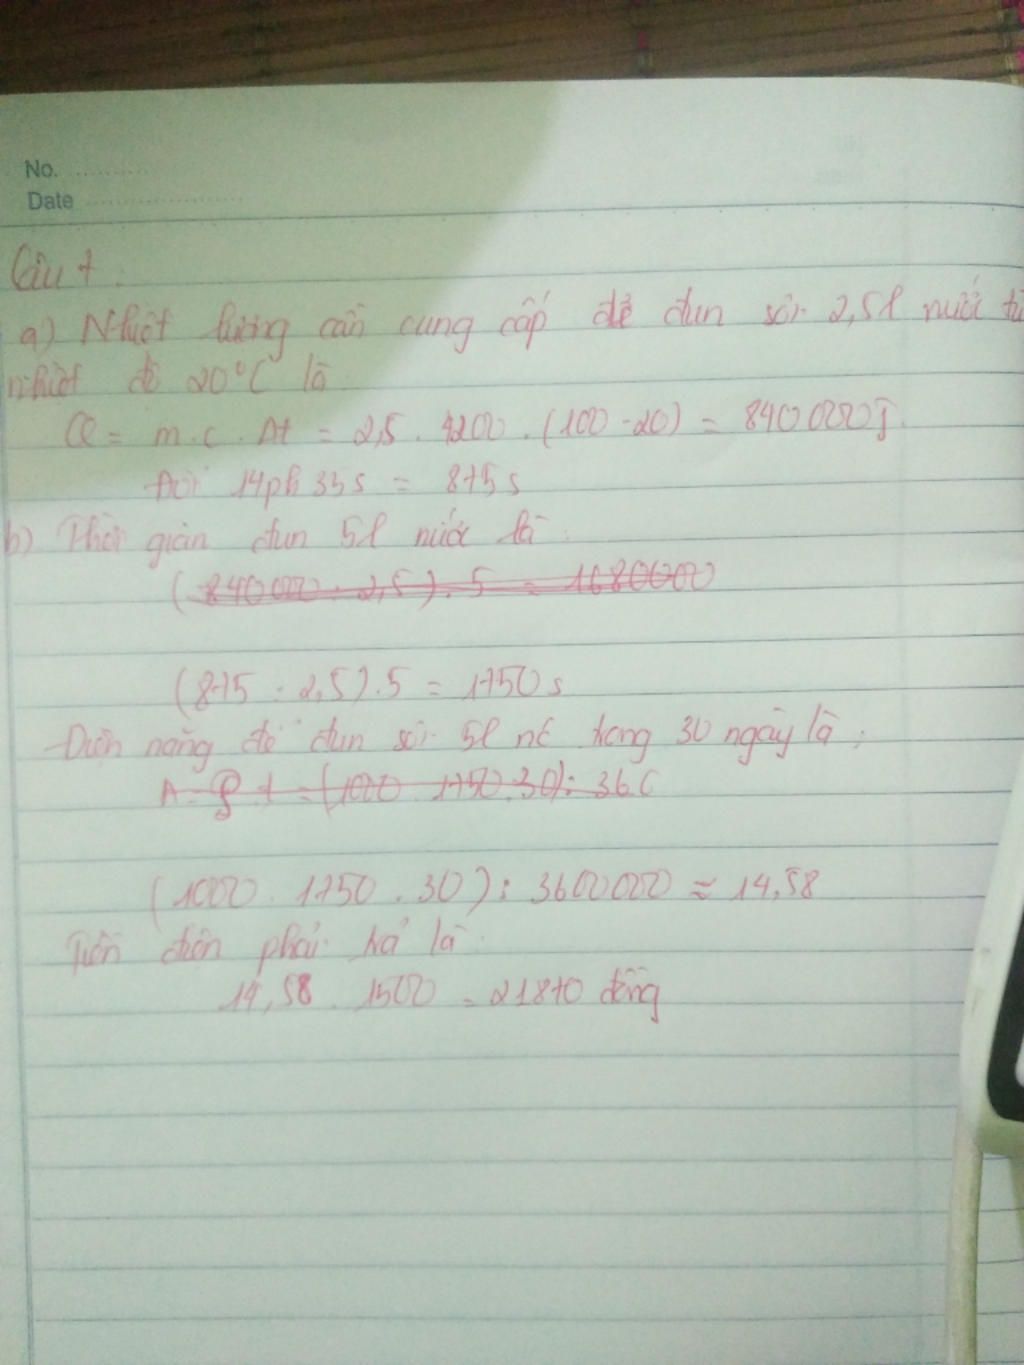 No.
Date
Câu 7:
a) Nhiệt lượng cần cung cấp để đun sôi 2,5l nước từ
nhiệt độ 20°C là
Q = m.c.Δt = 2,5 . 4200 . (100-20) = 840 000J.
Đổi 14ph 35s = 875s
b) Thời gian đun 5l nước là:
(840000 : 2,5).5 = 1680000
(875 : 2,5).5 = 1750s
Điện năng để đun sôi 5l nc trong 30 ngày là:
A = P.t = (1000.1750.30): 36C
(1000.1750.30): 3600000 ≈ 14,58
Tiền điện phải trả là:
14,58 . 1500 = 21870 đồng